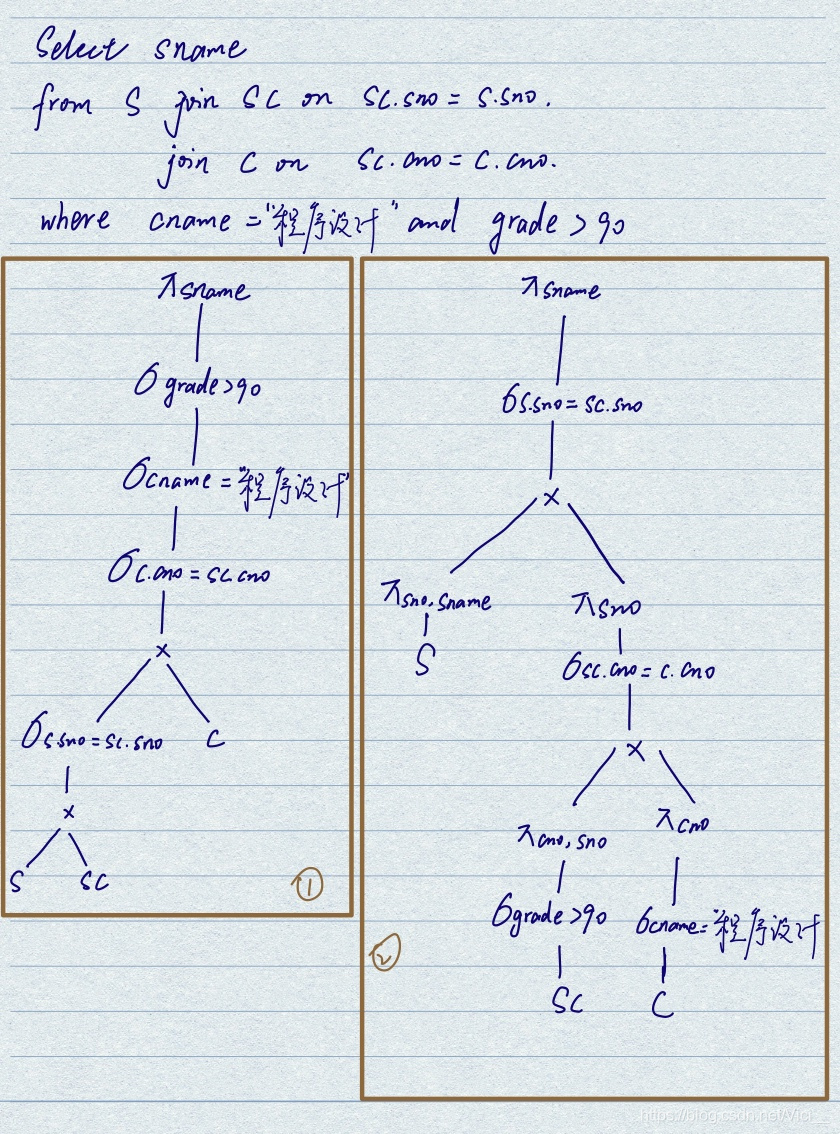 Select sname
from S join SC on SC.sno = S.sno.
join C on SC.cno = C.cno.
where cname = "程序设计" and grade > 90
πsname
σgrade>90
σcname = "程序设计"
σC.cno = SC.cno
×
σS.sno = SC.sno C
×
S SC
①
πsname
σS.sno = SC.sno
×
πsno,sname πsno
S
σSC.cno = C.cno
×
πcno,sno πcno
σgrade>90 σcname = "程序设计"
SC C
②